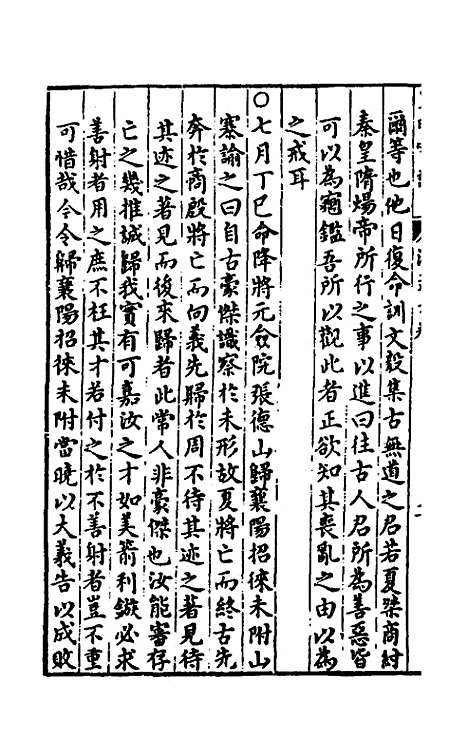 爾等也他日復命訓文設集古無道之君若夏桀商紂
秦皇隋煬帝所行之事以進曰往古人君所為善惡皆
可以為龜鑑吾所以觀此者正欲知其喪亂之由以為
之戒耳
○七月丁巳命降將元僉院張德山歸襄陽招徠未附山
寨諭之曰自古豪傑識察於未形故夏將亡而終古先
奔於商殷將亡而向義先歸於周不待其迹之著見待
其迹之著見而後來歸者此常人非豪傑也汝能審存
亡之幾推誠歸我實有可嘉汝之才如美箭利鏃必求
善射者用之庶不枉其才若付之於不善射者豈不重
可惜哉今令歸襄陽招徠未附當曉以大義告以成敗